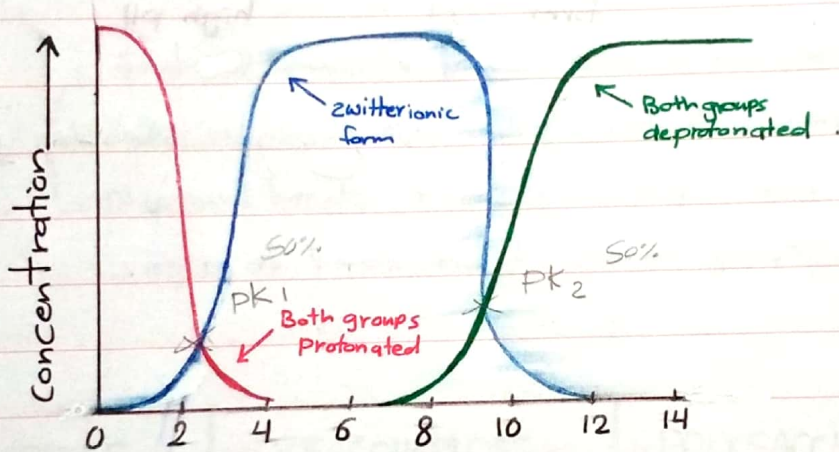 Concentration
zwitterionic
form
Both groups
deprotonated.
50%
pK1
Both groups
Protonated
50%
pK2
0 2 4 6 8 10 12 14